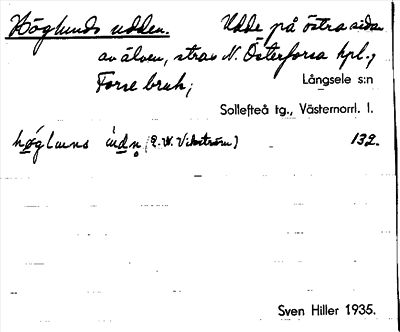 Höglunds udden. Udde på östra sidan
av älven, strax N. Österforsa hpl.,
Forse bruk; Långsele s:n
Sollefteå tg., Västernorrl. l.
hǫ́glunns úḍṇ (E. W. Vikström) 132.
Sven Hiller 1935.